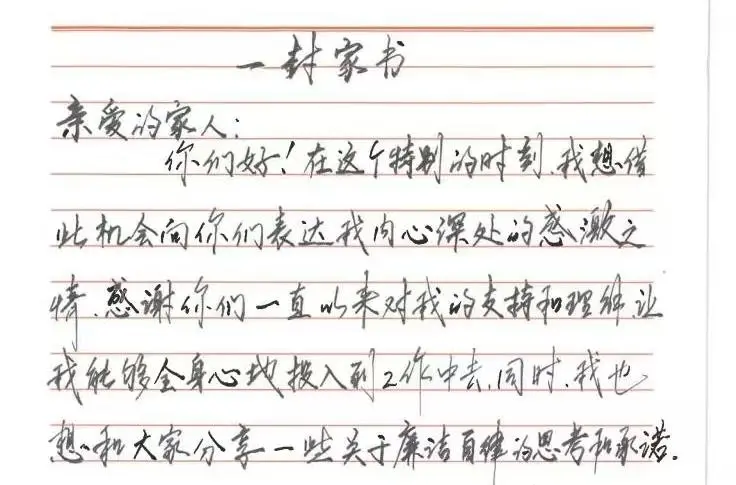 一封家书
亲爱的家人：
你们好！在这个特别的时刻，我想借
此机会向你们表达我内心深处的感激之
情，感谢你们一直以来对我的支持和理解，让
我能够全身心地投入到工作中去，同时，我也
想和大家分享一些关于廉洁自律的思考和承诺.